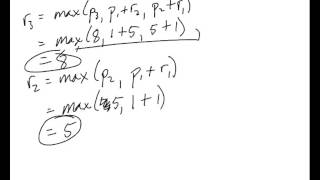 r₃ = max(p₃, p₁+r₂, p₂+r₁)
= max(8, 1+5, 5+1)
= 8
r₂ = max(p₂, p₁+r₁)
= max(5, 1+1)
= 5